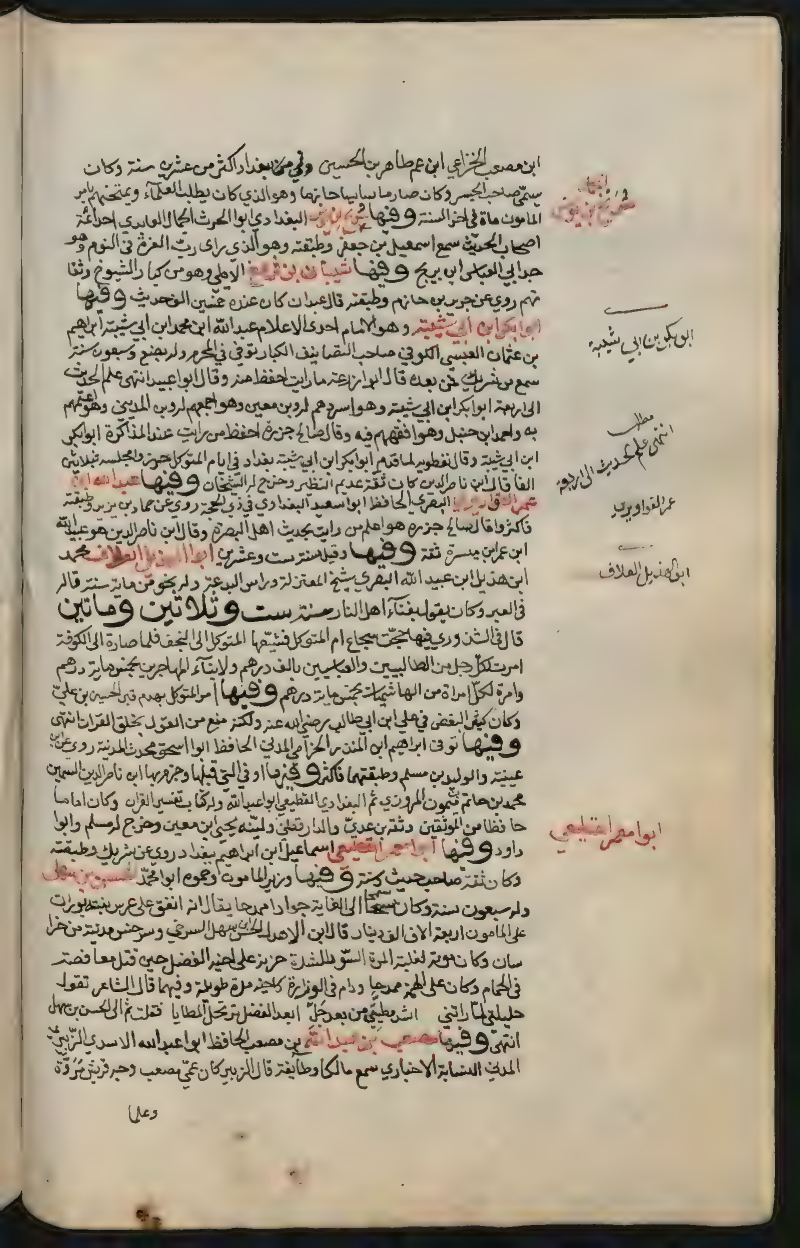 ابن مصعب الخزاعي ابن عم طاهر بن الحسين وفي من بغداد اكثر من عشرين سنة وكان
يسمى صاحب الجسر وكان صارما سايسا حازما وهو الذي كان يطلب العلماء ويمتحنهم بامر
المامون مات في اخر السنة وفيها البغدادي ابو الحرث الجمال العابد احد ائمة
اصحاب الحديث سمع اسمعيل بن جعفر وطبقته وهو الذي راى رب العزة في النوم وهو
جد ابي العباس ابن سريج وفيها شيبان بن فروخ الابلي وهو من كبار الشيوخ وثقا
تهم روى عن جرير بن حازم وطبقته قال عبدان كان عنده خمسين الف حديث وفيها
ابو بكر ابن ابي شيبة وهو الامام احد الاعلام عبد الله ابن محمد ابن ابي شيبة ابراهيم
بن عثمان العبسي الكوفي صاحب التصانيف الكبار توفي في المحرم وله بضع وسبعون سنة
سمع من شريك فمن بعده قال ابو زرعة ما رايت احفظ منه وقال ابو عبيد انتهى علم الحديث
الى اربعة ابو بكر ابن ابي شيبة وهو اسردهم له وبن معين وهو اجمعهم له وبن المديني وهو اعلمهم
به واحمد ابن حنبل وهو افقههم فيه وقال صالح جزرة احفظ من رايت عند المذاكرة ابو بكر
ابن ابي شيبة وقال نفطويه لما قدم ابو بكر ابن ابي شيبة بغداد في ايام المتوكل حزروا مجلسه بثلاثين
الفا قال ابن ناصر الدين كان ثقة عديم النظير وخرج له الشيخان وفيها عبيد الله ابن
عمر القواريري البصري الحافظ ابو سعيد البغدادي في ذي الحجة روى عن حماد بن زيد وطبقته
فاكثر وا قال صالح جزرة هو اعلم من رايت بحديث اهل البصرة وقال ابن ناصر الدين هو عبيد الله
ابن عمر ابن ميسرة ثقة وفيها وقيل سنة ست وعشرين ابو الهذيل العلاف محمد
ابن هذيل ابن عبيد الله البصري شيخ المعتزلة وراس البدعة وله نحو من ماية سنة قاله
في العبر وكان يقول بفناء اهل النار سنة ست وثلاثين ومائتين
قال في الشذور وفيها حجت شجاع ام المتوكل فشيعها المتوكل الى النجف فلما صارة الى الكوفة
امرت لكل رجل من الطالبيين والعباسيين بالف درهم ولابناء المهاجرين بخمس ماية درهم
وامرة لكل امراة من الهاشميات بخمس ماية درهم وفيها امر المتوكل بهدم قبر الحسين بن علي
وكان كيفي البغض في علي ابن ابي طالب رضي الله عنه ولكنه منع من القول بخلق القران انتهى
وفيها توفي ابراهيم ابن المنذر الحزامي المدني الحافظ ابو اسحق محدث المدينة روى عن ابن
عيينة والوليد بن مسلم وطبقتهما فاكثر وفيها او في التي قبلها وجزم بها ابن ناصر الدين السمين
محمد بن حاتم بن ميمون المروزي ثم البغدادي القطيعي ابو عبد الله وله كتاب تفسير القران وكان اماما
حافظا من الموثقين وثقه بن عدي والدارقطني ولينه يحيى ابن معين وخرج له مسلم وابو
داود وفيها ابو معمر القطيعي اسماعيل ابن ابراهيم ببغداد روى عن شريك وطبقته
وكان ثقة صاحب حديث وسنة وفيها وزير المامون وحموه ابو محمد الحسن بن سهل
وله سبعون سنة وكان سمحا الى الغاية جوادا ممدحا يقال انه انفق على عرس بنته بوران
على المامون اربعة الاف الف دينار قال ابن الاهدل الحسن بن سهل السرخسي وسرخس مدينة من خرا
سان وكان موته لغلبة المرة السودا لشدة حزنه على اخيه الفضل حين قتل معا فصد
في الحمام وكان عالي الهمة ممدحا ودام في الوزارة كاخيه مدة طويلة وفيهما قال الشاعر تقول
حليلتي لما راتني اشد مطيتي من بعد حل ابعد الفضل ترتحل المطايا فقلت نعم الى الحسن بن سهل
انتهى وفيها مصعب بن عبد الله بن مصعب الحافظ ابو عبد الله الاسدي الزبيري
المدني النسابة الاخباري سمع مالكا وطايفة قال الزبير كان عمي مصعب وجه قريش مروة
وعلما
ابو بكر بن ابي شيبة
مطلب
انتهى علم الحديث الى اربعة
عمر القواريري
ابو الهذيل العلاف
ابو امعمر القطيعي